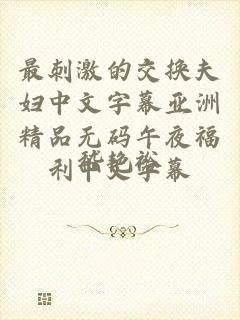 最刺激的交换夫
妇中文字幕亚洲
精品无码午夜福
利中文字幕
嵇艳裕